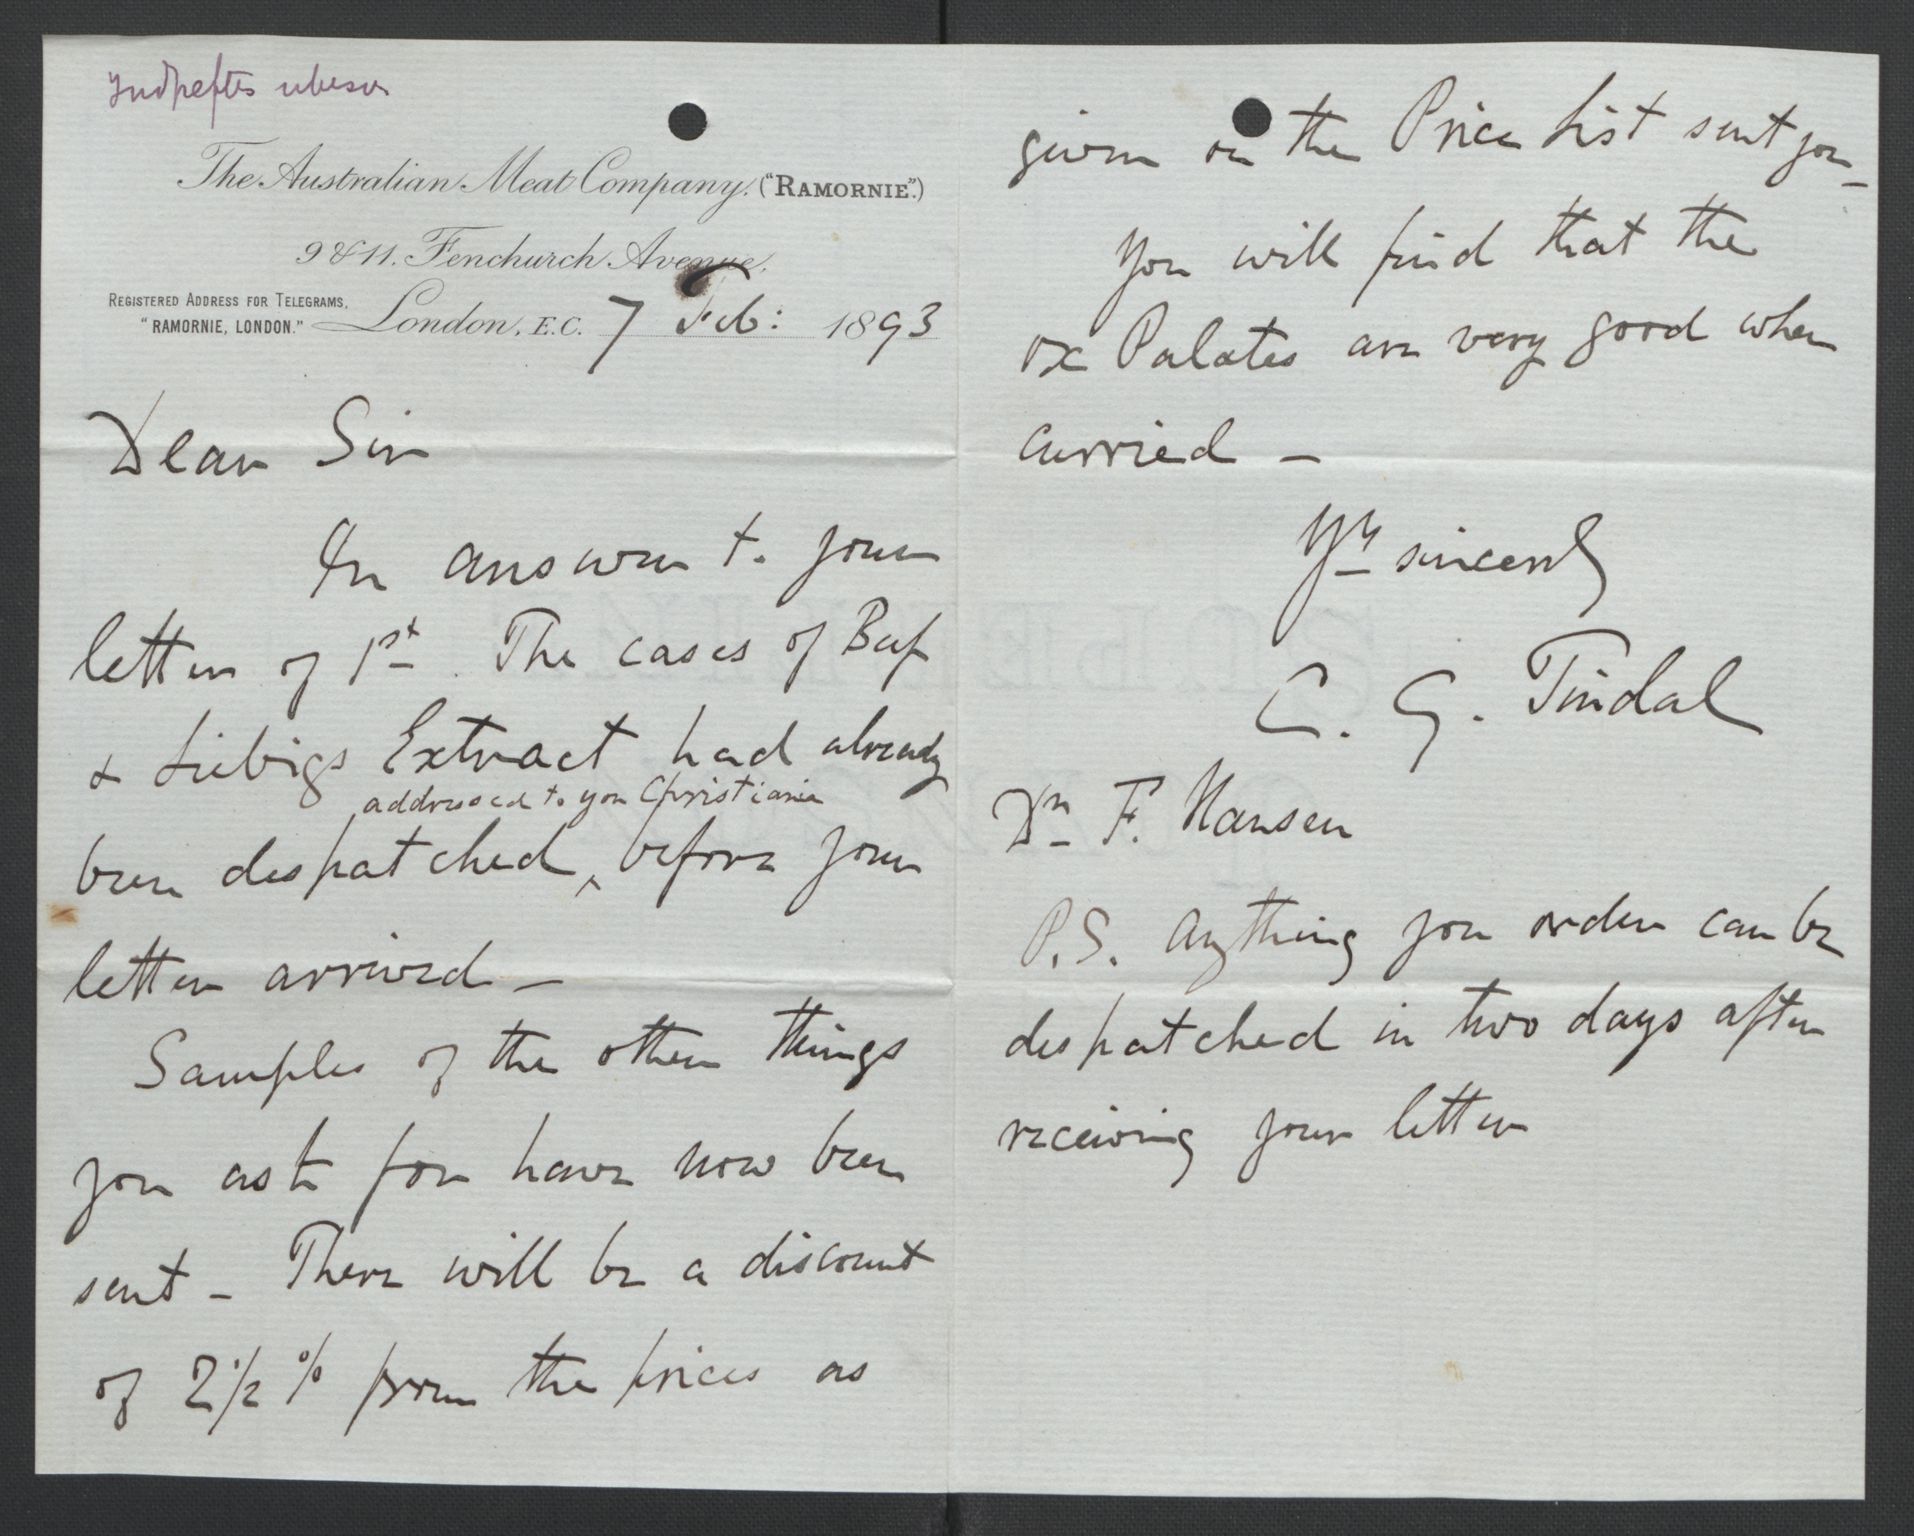 The Australian Meat Company. ("RAMORNIE".)
9 & 11. Fenchurch Avenue,
REGISTERED ADDRESS FOR TELEGRAMS,
"RAMORNIE, LONDON."
London, E.C. 7 Feb: 1893
Dear Sir
In answer to your
letter of 1st. The cases of Beef
& Liebigs Extract had already
addressed to you Christiania
been despatched ‸ before your
letter arrived –
Samples of the other things
you ask for have now been
sent – There will be a discount
of 2½ % from the prices as
given on the Price List sent you –
You will find that the
ox Palates are very good when
curried –
Yrs sincerely
C. G. Tindal
Dr F. Nansen
P.S. Anything you order can be
despatched in two days after
receiving your letter